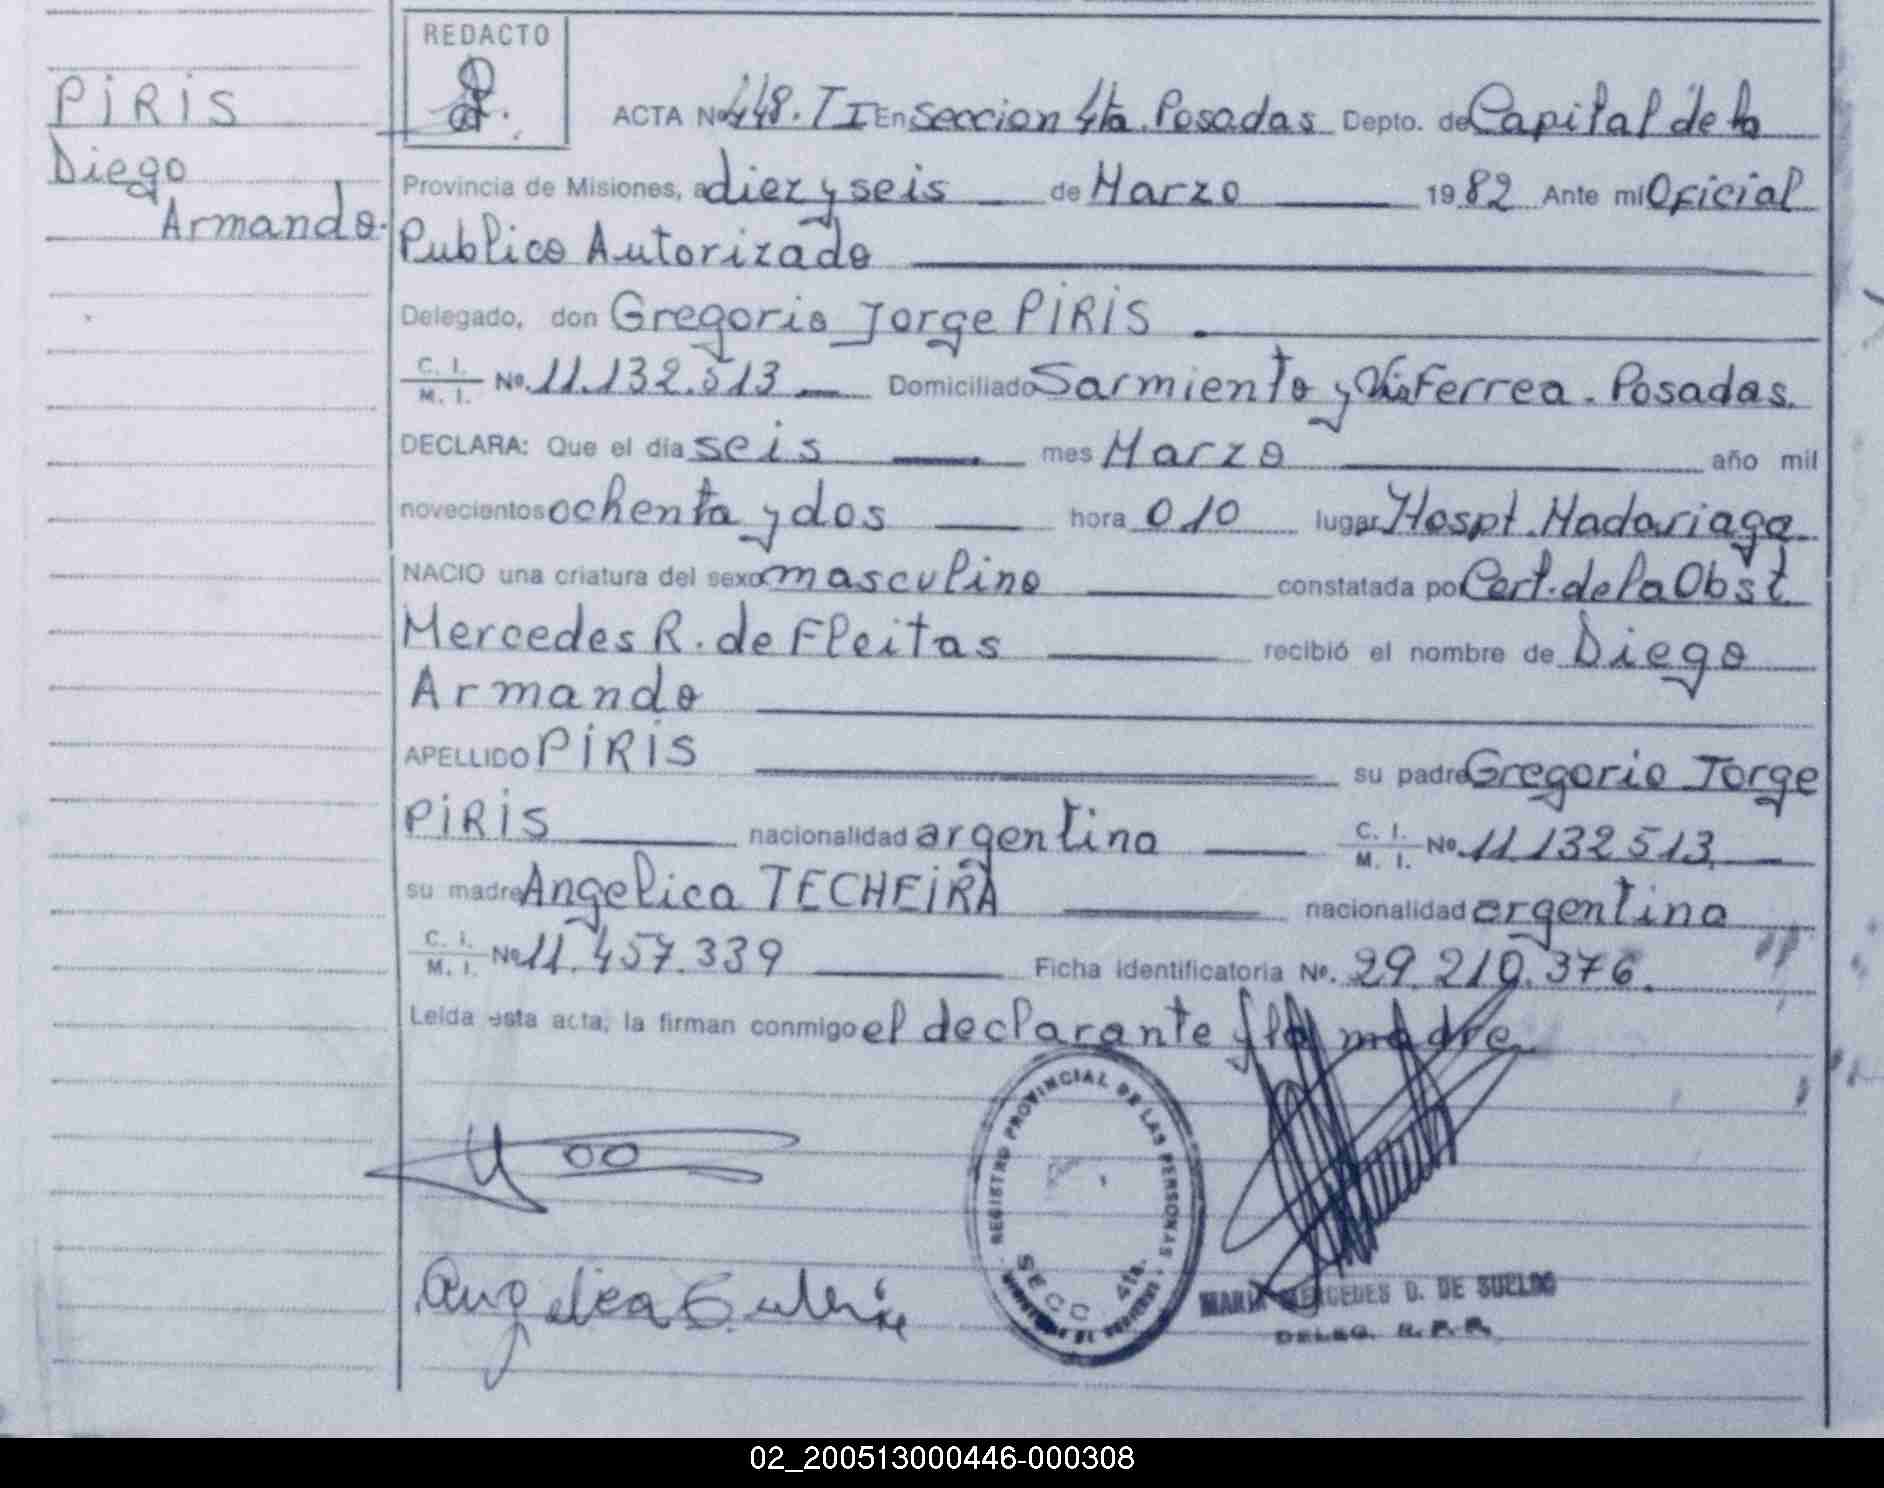 PIRIS
Diego
Armando.
REDACTO
ACTA No 448. TI En Seccion 4ta. Posadas Depto. de Capital de la
Provincia de Misiones, a diez y seis de Marzo 1982 Ante mi Oficial
Publico Autorizado
Delegado, don Gregorio Jorge PIRIS
C. I. / M. I. No. 11.132.513 Domiciliado Sarmiento y Via Ferrea. Posadas.
DECLARA: Que el día seis mes Marzo año mil
novecientos ochenta y dos hora 010 lugar Hospt. Madariaga
NACIO una criatura del sexo masculino constatada por Cert. de la Obst.
Mercedes R. de Fleitas recibió el nombre de Diego
Armando
APELLIDO PIRIS su padre Gregorio Jorge
PIRIS nacionalidad argentina C. I. / M. I. No. 11.132513
su madre Angelica TECHEIRA nacionalidad argentina
C. I. / M. I. No 11.457.339 Ficha identificatoria No. 29.210.376.
Leída esta acta, la firman conmigo el declarante y la madre
REGISTRO PROVINCIAL DE LAS PERSONAS
SECC. 4ta.
Angelica
MARIA MERCEDES D. DE SUELDO
DELEG. R. P. P.
02_200513000446-000308